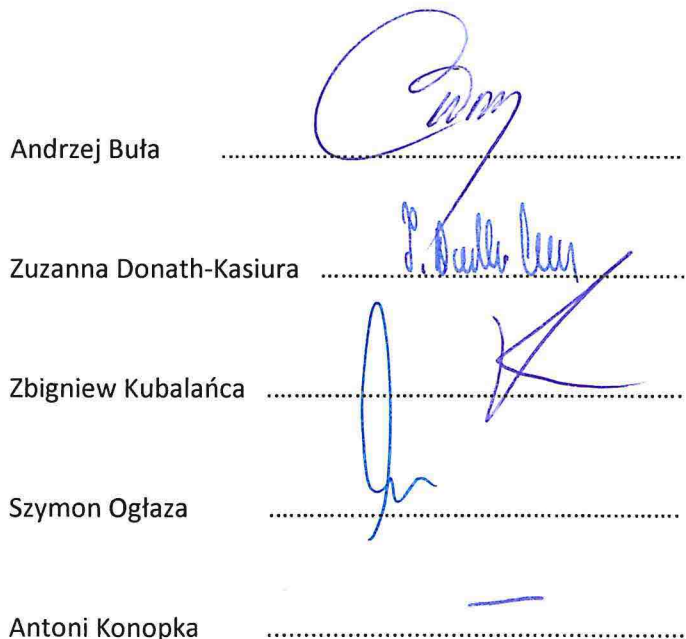 Andrzej Buła ........................................................................
Zuzanna Donath-Kasiura ........................................................
Zbigniew Kubalańca ................................................................
Szymon Ogłaza ................................................................
Antoni Konopka ................................................................